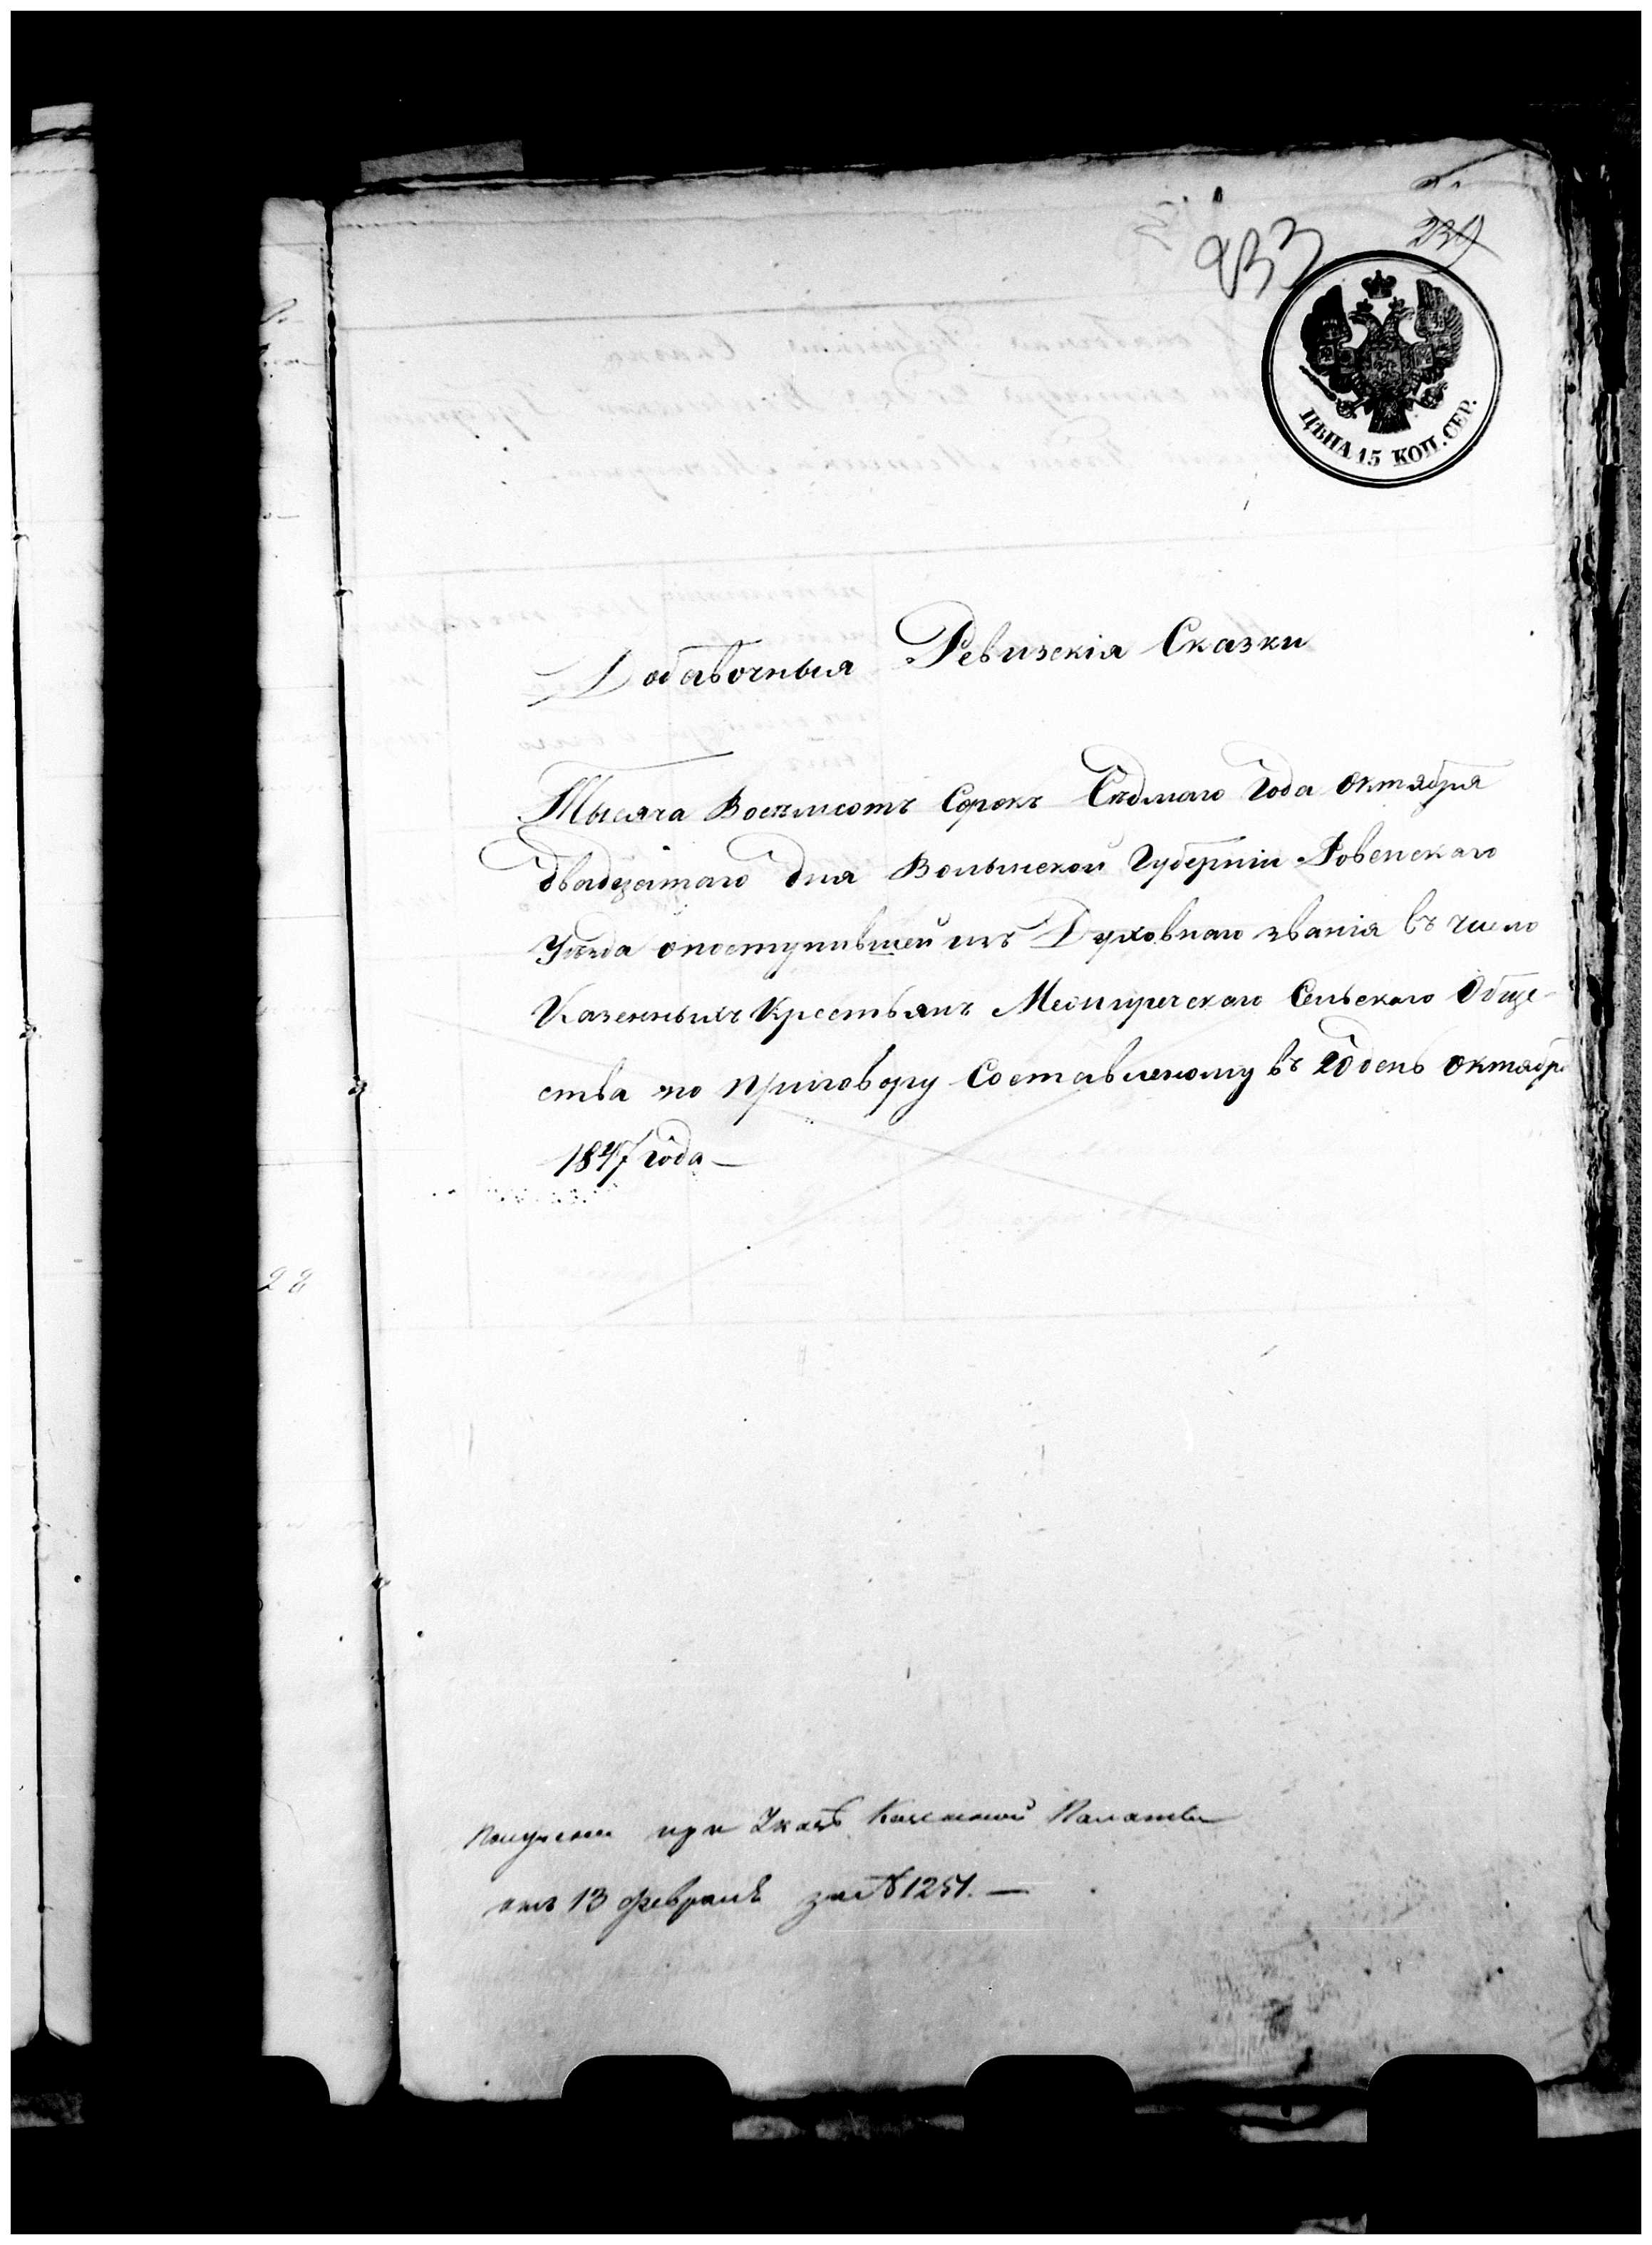 233
239
ЦѢНА 15 КОП. СЕР.
Добавочныя Ревизскія Сказки
Тысяча Восемьсотъ Сорокъ Седмаго Года Октября
двадцатаго дня Волынской Губерніи Ровенскаго
Уѣзда опоступившей изъ Духовнаго званія въ число
Казенныхъ Крестьянъ Межиричскаго Сельскаго Обще-
ства по приговору Составленому въ 20 день Октября
1847 года —
Получены при Указѣ Казенной Палаты
отъ 13 февраля за № 1251. —
28